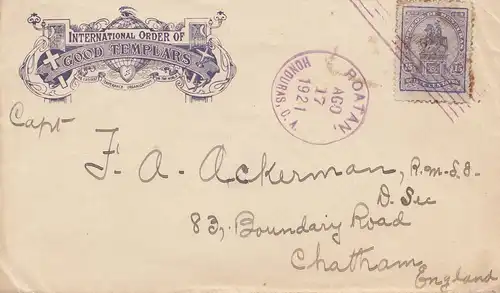 INTERNATIONAL ORDER OF
GOOD TEMPLARS
ROATAN,
AGO
17
1921
HONDURAS, C.A.
15
Capt
F. A. Ackerman, R.M.S.I.
D. Sec
83, Boundary Road
Chatham
England